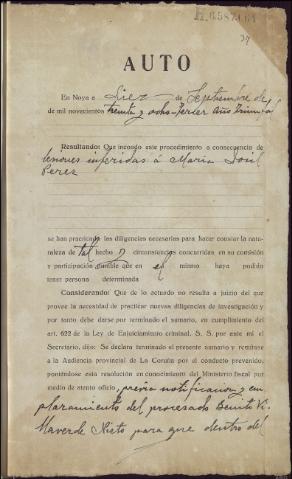 39
AUTO
En Noya a Diez de Septiembre de
de mil novecientos treinta y ocho Tercer Año Triunfal
Resultando: Que incoado este procedimiento a consecuencia de
lesiones inferidas á Maria José
Perez
se han practicado las diligencias necesarias para hacer constar la natu-
raleza de tal hecho y circunstancias concurridas en su comisión
y participación punible que en el mismo haya podido
tener persona determinada
Considerando: Que de lo actuado no resulta a juicio del que
provee la necesidad de practicar nuevas diligencias de investigación y
por tanto debe darse por terminado el sumario, en cumplimiento del
art. 622 de la Ley de Enjuiciamiento criminal. S. S. por ante mí el
Secretario, dijo: Se declara terminado el presente sumario y remítase
a la Audiencia provincial de La Coruña por el conducto prevenido,
poniéndose esta resolución en conocimiento del Ministerio fiscal por
medio de atento oficio, previa notificacion y em-
plazamiento del procesado Benito Vi-
llaverde Nieto para que dentro del